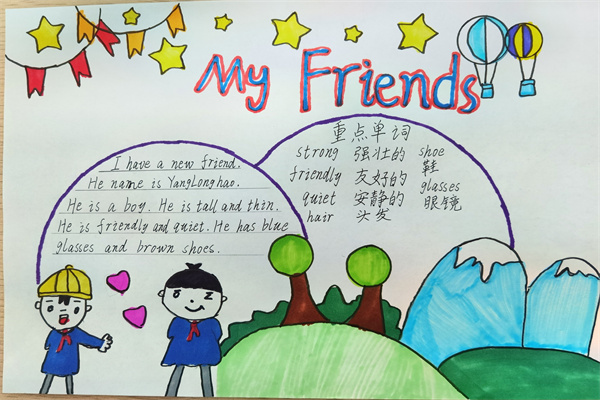 My Friends
I have a new friend.
He name is YangLonghao.
He is a boy. He is tall and thin.
He is friendly and quiet. He has blue
glasses and brown shoes.
重点单词
strong 强壮的 shoe 鞋
friendly 友好的 glasses 眼镜
quiet 安静的
hair 头发